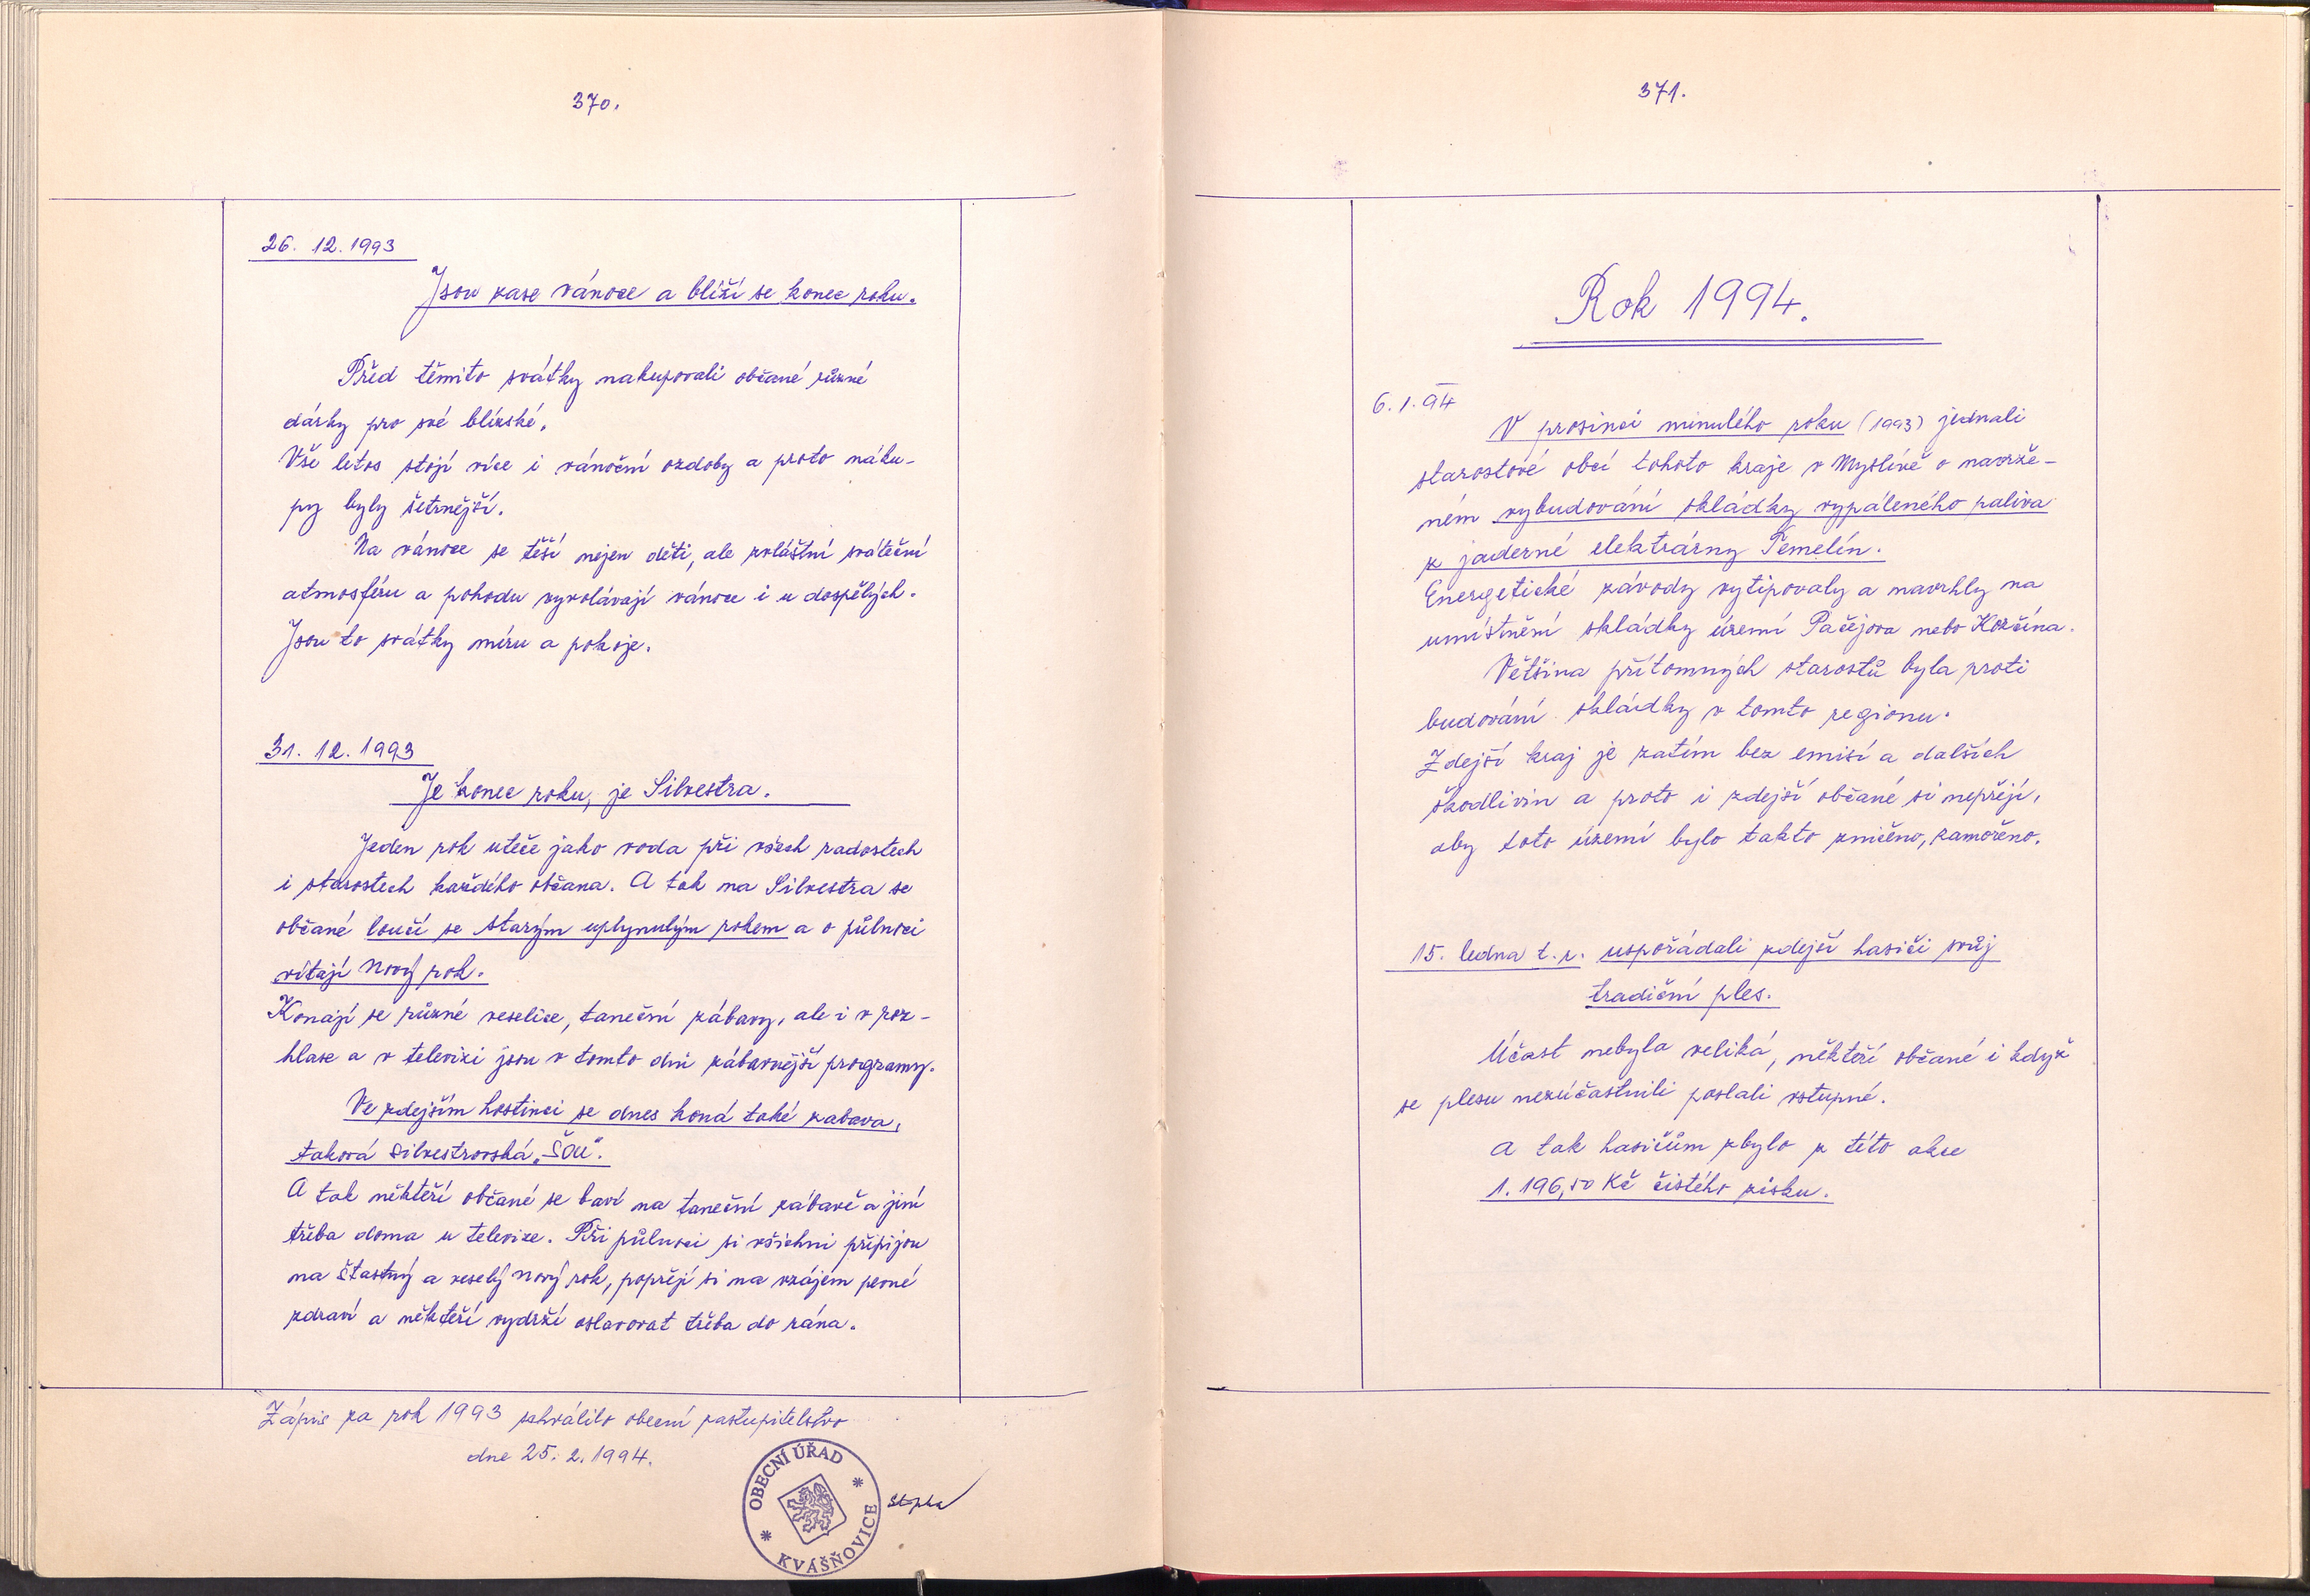 370.
26. 12. 1993
Jsou zase vánoce a blíží se konec roku.
Před těmito svátky nakupovali občané různé
dárky pro své blízské.
Vše letos stojí více i vánoční ozdoby a proto náku-
py byly šetrnější.
Na vánoce se těší nejen děti, ale zvláštní sváteční
atmosféru a pohodu vyvolávají vánoce i u dospělých.
Jsou to svátky míru a pokoje.
31. 12. 1993
Je konec roku, je Silvestra.
Jeden rok uteče jako voda při všech radostech
i starostech každého občana. A tak na Silvestra se
občané loučí se starým uplynulým rokem a o půlnoci
vítají Nový rok.
Konají se různé veselice, taneční zábavy, ale i v roz-
hlase a v televizi jsou v tomto dni zábavnější programy.
Ve zdejším hostinci se dnes koná také zabava,
taková silvestrovská „šou".
A tak někteří občané se baví na taneční zábavě a jiní
třeba doma u televize. Při půlnoci si všichni připijou
na štastný a veselý Nový rok, popřejí si na vzájem pevné
zdraví a někteří vydrží oslavovat třeba do rána.
Zápis za rok 1993 schválilo obecní zastupitelstvo
dne 25. 2. 1994.
OBECNÍ ÚŘAD
* KVÁŠŇOVICE *
371.
Rok 1994.
6. 1. 94
V prosinci minulého roku (1993) jednali
starostové obcí tohoto kraje v Myslívě o navrže-
ném vybudování skládky vypáleného paliva
z jaderné elektrárny Temelín.
Energetické závody vytipovaly a navrhly na
umístnění skládky území Pačejova nebo Kozčína.
Většina přítomných starostů byla proti
budování skládky v tomto regionu.
Zdejší kraj je zatím bez emisí a dalších
škodlivin a proto i zdejší občané si nepřejí,
aby toto území bylo takto zničeno, zamořeno.
15. ledna t. r. uspořádali zdejší hasiči svůj
tradiční ples.
Účast nebyla veliká, někteří občané i když
se plesu nezúčastnili poslali vstupné.
A tak hasičům zbylo z této akce
1. 196,50 Kč čistého zisku.